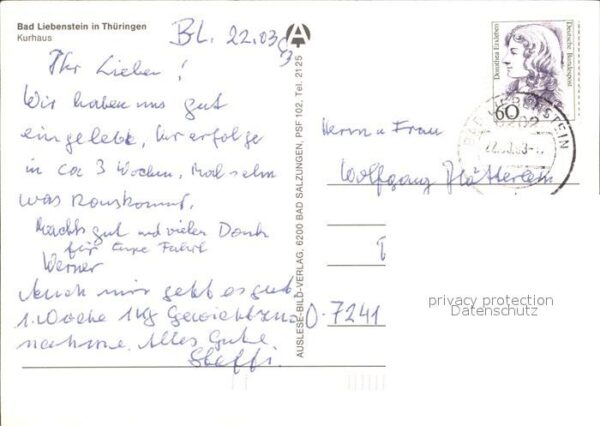 Bad Liebenstein in Thüringen
Kurhaus
BL. 22.03.93
Ihr Lieben!
Wir haben uns gut
eingelebt, Kurerfolge
in ca 3 Wochen, Mal sehn
was rauskommt.
Machts gut und vielen Dank
für Eure Fahrt
Werner
Auch mir geht es gut.
1. Woche 1 kg Gewichtszu
nahme. Alles Gute
Steffi.
AUSLESE-BILD-VERLAG, 6200 BAD SALZUNGEN, PSF 102, Tel. 2125
A
Dorothea Erxleben
Deutsche Bundespost
60
BAD LIEBENSTEIN
Herrn u Frau
Wolfgang
O-7241
privacy protection
Datenschutz